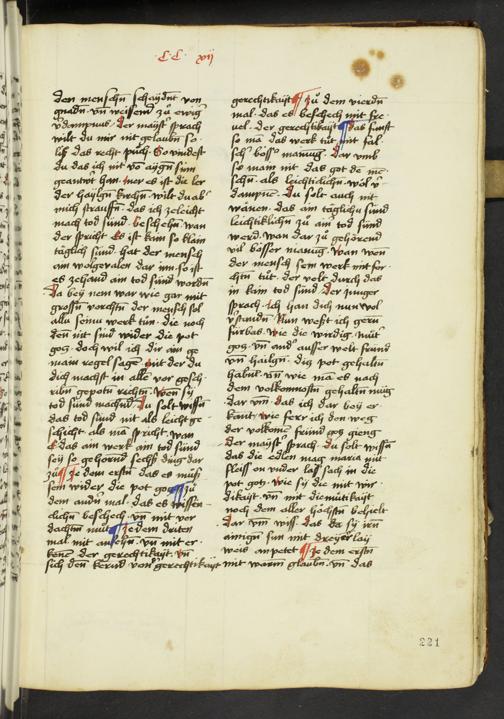 C C xvij
den menschn schaydnt von
gnadn vn weisend zu ewig
v̈dampnus. Der mayst sprach
wilt du mir nit gelaubn so
liss das recht puch. So vindest
du das ich nit võ aygn sinn
geantw̃t han. mer es ist die ler
der haylgn kirchn. wilt du ab̃
mich straffn. das ich zeleicht
mach tod sünd. beschehn wan
der spricht Es ist kain so klain
täglich sünd. hat der mensch
ain wolgevaln dar inn. so ist
es zehand ain tod sünd wordn
Da bey nem war wie gar mit
grossn vorchtn der mensch sol
alln seine werk tün. die noch
denn nit sind wider die pot
gotz. doch wil ich dir ain ge
maine regel sagn mit der du
dich machst in alln vor gesch
ribn gepotn richtn. wen sy
tod sünd machnd. Du solt wissn
das tod sünd nit als leicht ge
schicht als mã spricht. wan
Es das ain werk ain tod sünd
sey so gehörnd sechs ding dar
zu. Ze dem erstn. das es müss
sein wider. die pot gotz. Zu
dem andn mal. das es wissen
clichn beschech. vn mit vor
dachtm müt. Ze dem dritn
mal mit vn mit er
kenē der gerechtikayt. vn
sich den kernd von gerechtikayt
gerechtikayt. Zu dem vierdn
mal. das es beschech mit fre
vel. der gerechtikayt. Das fünft
so ma das werk tüt mit fal
sch bösser mainug. Dar vmb
so main nit das got de me
schn. als leichtiklichn wöl v̈
dampnē. Du solt auch nit
wänen. das ain täglichn sünd
leichtiklichn zu ain tod sünd
werd. wan dar zu gehörend
vil bösser mainug. wan wen
der mensch sein werk nit für
chtn tüt. der wolt durch das
in kain tod sünd. Der junger
sprach. Ich han dich nun wol
v̈standn. Nun west ich gern
fürbas. wie die wirdig. müt
gotz vn and ausser welt fründ
vn hailgn. diz pot gehaltn
habnt. vn wie mã es nach
dem volkomnostn gehaltn müg
dar vm das ich dar bey er
kant. wie ferr ich den weg
der volkomē fründ gotz gieng
der mayst sprach. Du solt wissn
das die edlen mag maria mit
fleiss on vnder lass sach in die
pot gotz. wie sy die mit wir
dikayt. vn mit diemütikayt
noch dem aller höchstn behielt
Dar vm wiss. das sy irn
ainign sun mit dreyer lay
weis anpetet. Ze dem erstn
mit warm glaubn. vn das
221